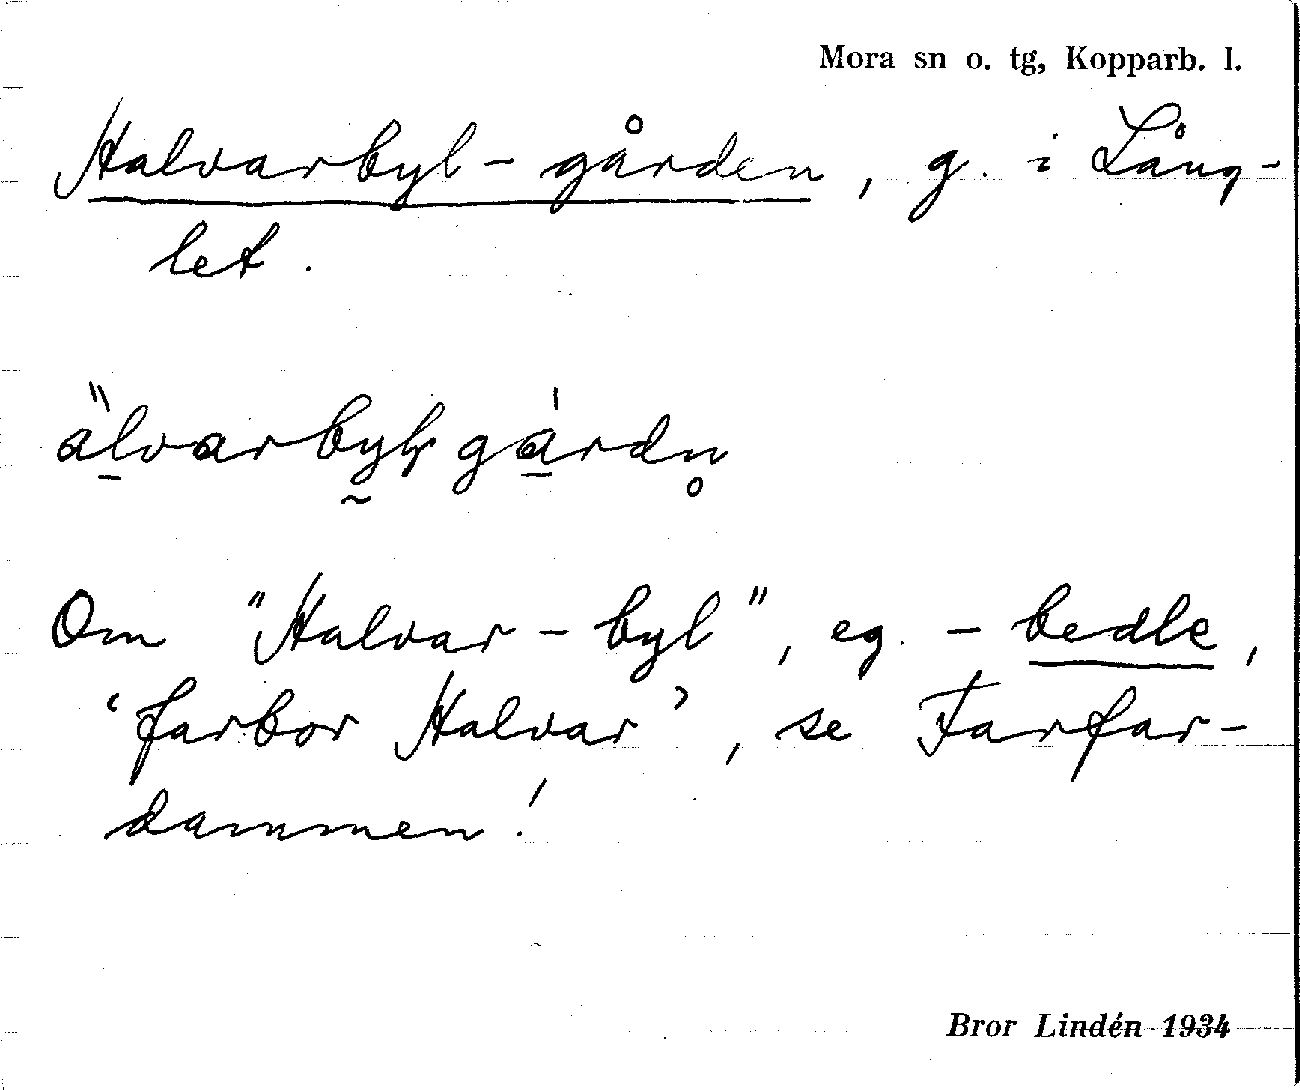 Mora sn o. tg, Kopparb. l.
Halvarbyl-gården, g. i Lång-
let.
älvarbylsgárdn̥
Om "Halvar-byl", eg. -bedle,
'farbor Halvar', se Farfar-
dammen!
Bror Lindén 1934